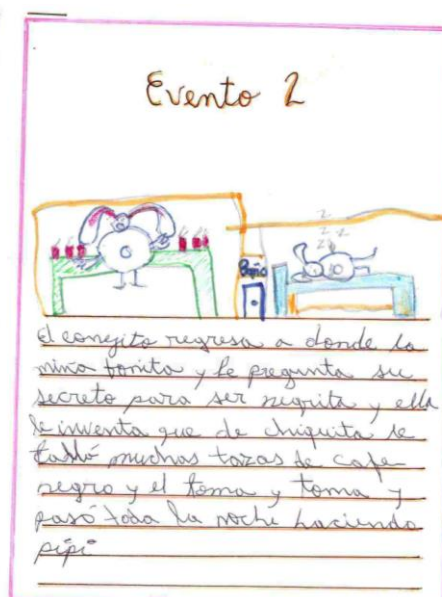 Evento 2
z
z
z z
Baño
el conejito regresa a donde la
niña bonita y le pregunta su
secreto para ser negrita y ella
le inventa que de chiquita se
muchas tazas de cafe
negro y el toma y toma y
pasó toda la noche haciendo
pipi